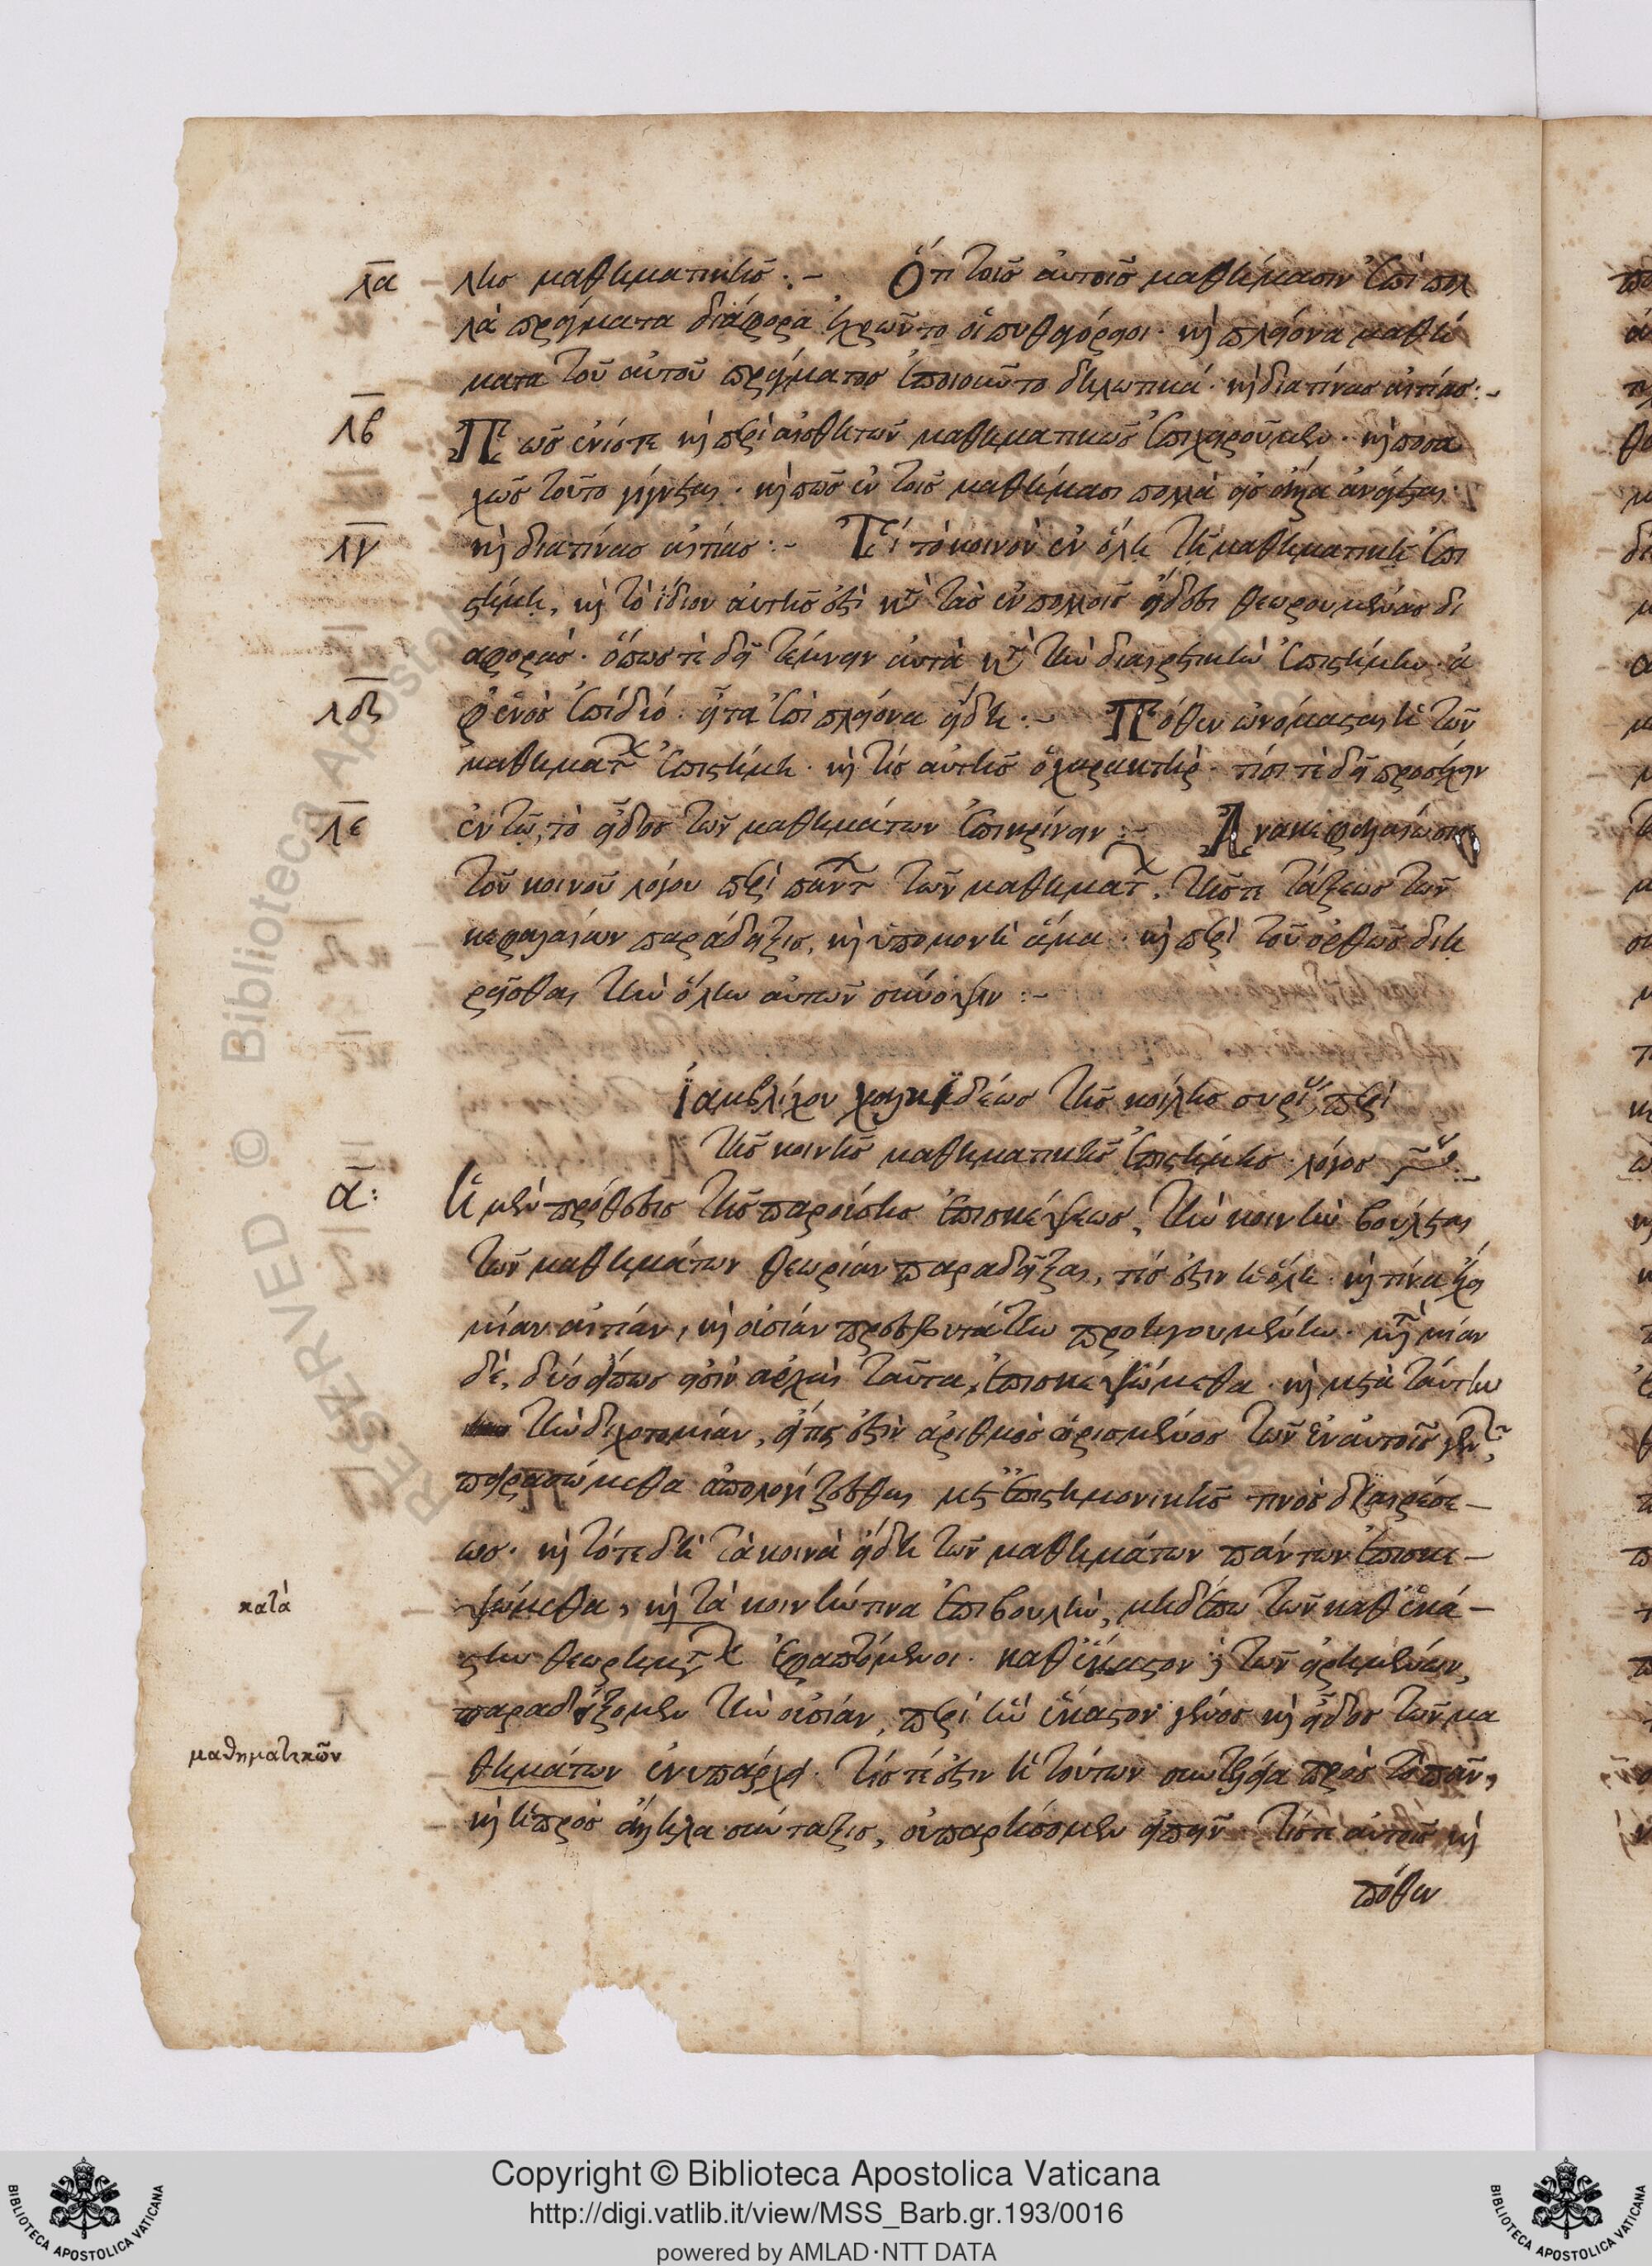 λα
λης μαθηματικῆς :- Ὅτι τοῖς αὐτοῖς μαθήμασιν ἐπὶ πολ
λὰ πράγματα διάφορα ἐχρῶντο οἱ πυθαγόρειοι· καὶ πλείονα μαθή
ματα τοῦ αὐτοῦ πράγματος ἐποιοῦντο δηλωτικά· καὶ διὰ τίνας αἰτίας :-
λβ
Πῶς ἐνίοτε καὶ περὶ αἰσθητῶν μαθηματικῶς ἐπιχειροῦμεν· καὶ ποσα
χῶς τοῦτο γίγνεται· καὶ πῶς ἐν τοῖς μαθήμασι πολλὰ εἰς ἄλληλα ἀνάγεται·
λγ
καὶ διὰ τίνας αἰτίας :- Τί τὸ κοινὸν ἐν ὅλῃ τῇ μαθηματικῇ ἐπι
στήμῃ, καὶ τὸ ἴδιον αὐτῆς ἐστὶ κατὰ τὰς ἐν πολλοῖς εἴδεσι θεωρουμένας δι
αφοράς· ὅπως τὲ δεῖ τέμνειν αὐτὰ κατὰ τὴν διαιρετικὴν ἐπιστήμην· ἀ
λδ
φ' ἑνὸς ἐπὶ δύο· εἶτα ἐπὶ πλείονα εἴδη :- Πόθεν ὠνόμασται ἡ τῶν
μαθηματ ἐπιστήμη· καὶ τίς αὐτῆς ὁ χαρακτήρ· τίσι τὲ δεῖ προσέχειν
λε
ἐν τῷ, τὸ εἶδος τῶν μαθημάτων ἐπικρίνειν :- Ἀνακεφαλαίωσις
τοῦ κοινοῦ λόγου περὶ παντ τῶν μαθηματ, τῆς τε τάξεως τῶν
κεφαλαίων παράδειξις, καὶ ὑπομονὴ ἅμα· καὶ περὶ τοῦ ὀρθῶς διῃ
ρῆσθαι τὴν ὅλην αὐτῶν σύνοψιν :-
Ἰαμβλίχου χαλκιδέως τῆς κοίλης συρί, περὶ
τῆς κοινῆς μαθηματικῆς ἐπιστήμης λόγος
α:
Ἡ μὲν πρόθεσις τῆς παρούσης ἐπισκέψεως, τὴν κοινὴν βούλεται
τῶν μαθημάτων θεωρίαν παραδεῖξαι, τίς ἐστιν ἡ ὅλη· καὶ τίνα ἔχει
μίαν αἰτίαν, καὶ οὐσίαν πρεσβυτάτην προηγουμένην· μὴ μίαν
δὲ, δύο εἴπως εἰσὶν ἀρχαὶ ταῦτα, ἐπισκεψώμεθα· καὶ μετὰ ταύτην
τὴν διχοτομίαν, εἴ τις ἐστὶν ἀριθμὸς ὡρισμένος τῶν ἐν αὐτοῖς γεν,
πειρασώμεθα ἀπολογίζεσθαι μετ' ἐπιστημονικῆς τινὸς διαιρέσε-
ως· καὶ τότε δὴ τὰ κοινὰ εἴδη τῶν μαθημάτων πάντων ἐπισκε-
κατὰ
ψώμεθα, καὶ τὰ κοινήν τινα ἐπιβουλὴν, μηδέπω τῶν καθ' ἑκά-
στην θεωρημτ ἐφαπτόμενοι· καθ' ἕκαστον δὲ τῶν εἰρημένων,
παραδείξομεν τὴν οὐσίαν, περὶ ἣν ἕκαστον γένος καὶ εἶδος τῶν μα
μαθηματικῶν
θημάτων ἐνυπάρχει· τίς τέ ἐστιν ἡ τούτων συντέλεια πρὸς τὸ πᾶν,
καὶ ἡ πρὸς ἄλληλα σύνταξις, οὐ παρήσομεν εἰπεῖν· τίς τὲ αὐτοῖς καὶ
πόθεν
Copyright © Biblioteca Apostolica Vaticana
http://digi.vatlib.it/view/MSS_Barb.gr.193/0016
powered by AMLAD·NTT DATA